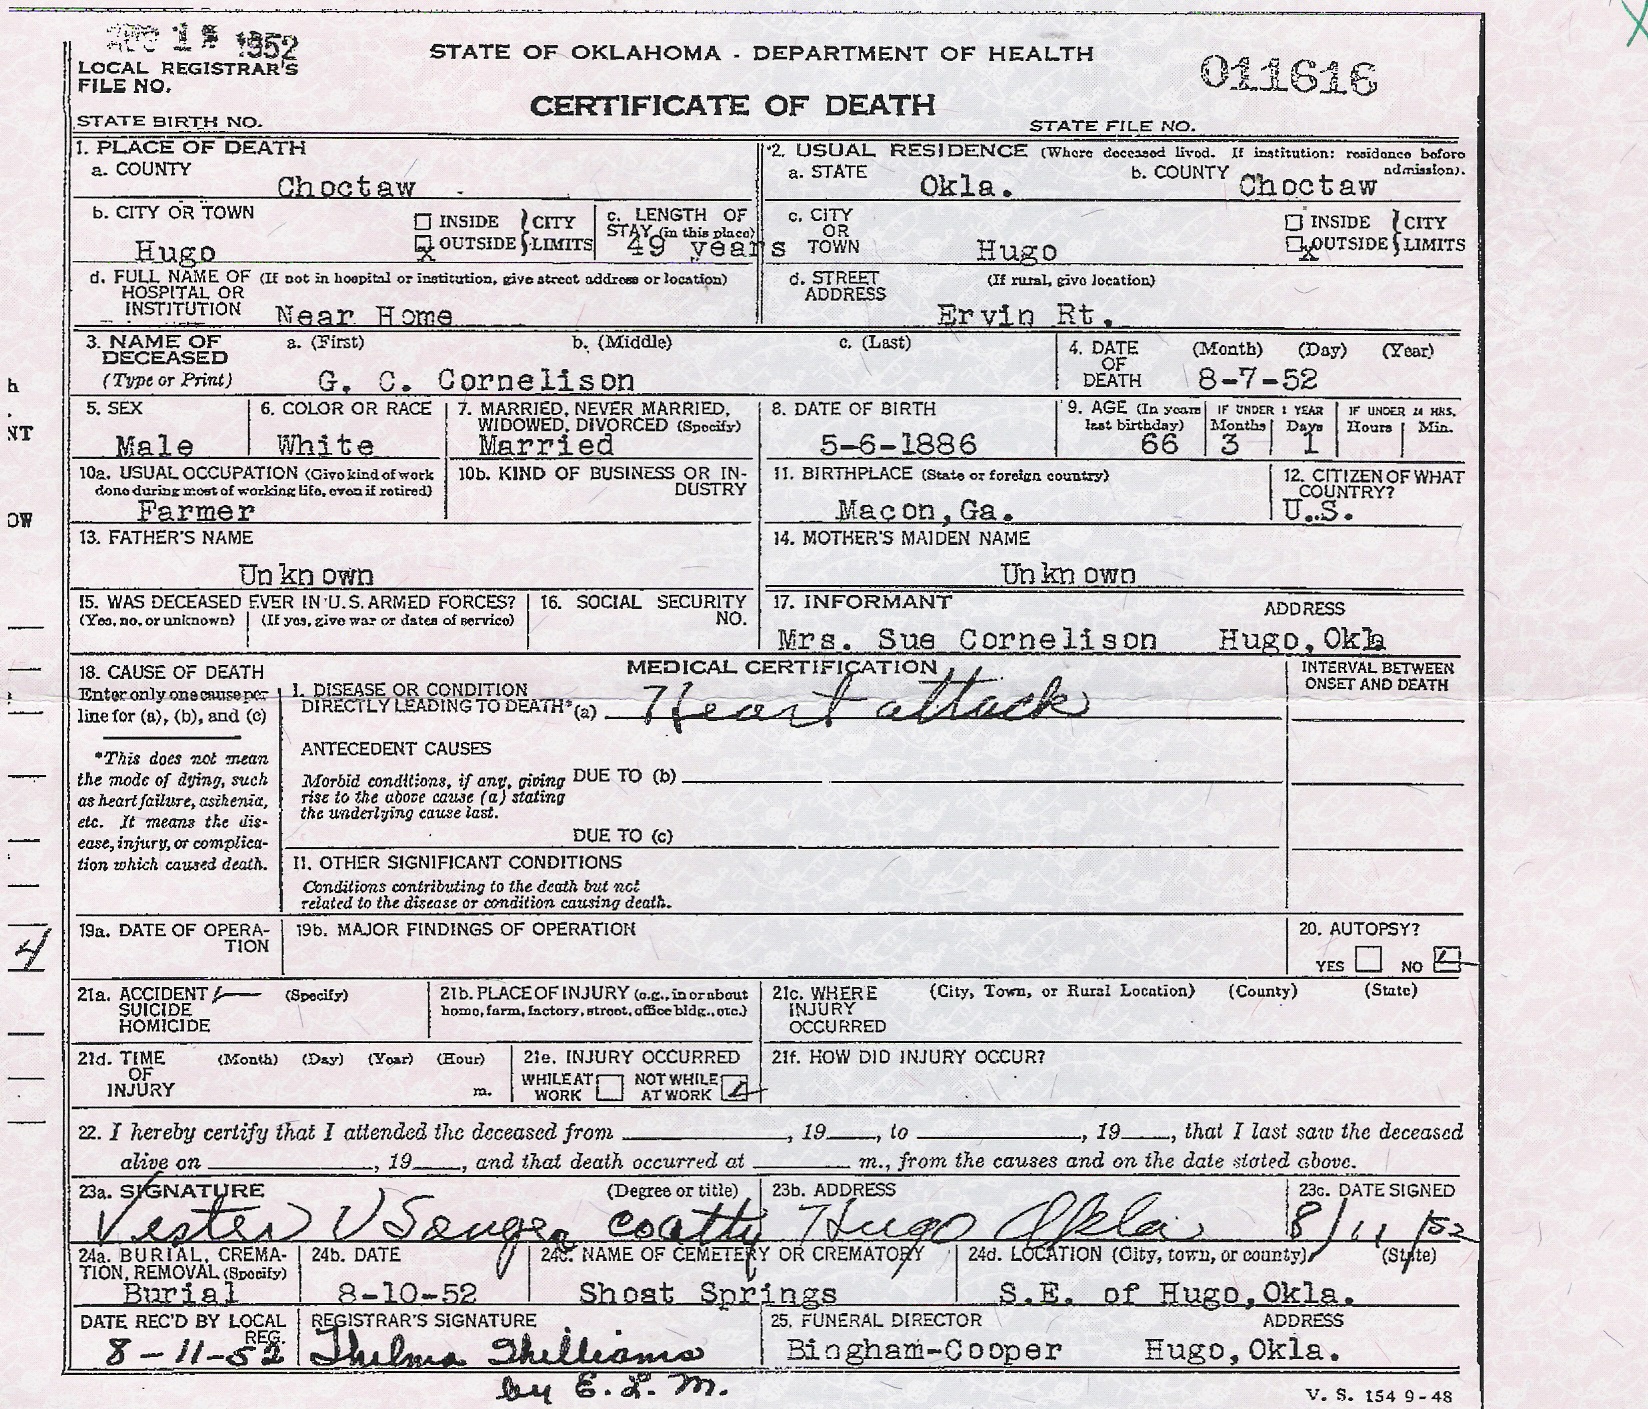 AUG 1 1952
STATE OF OKLAHOMA - DEPARTMENT OF HEALTH
011616
LOCAL REGISTRAR'S
FILE NO.
CERTIFICATE OF DEATH
STATE BIRTH NO.
STATE FILE NO.
1. PLACE OF DEATH
a. COUNTY
Choctaw
2. USUAL RESIDENCE (Where deceased lived. If institution: residence before admission).
a. STATE Okla. b. COUNTY Choctaw
b. CITY OR TOWN
Hugo
INSIDE } CITY
X OUTSIDE } LIMITS
c. LENGTH OF
STAY (in this place)
49 years
c. CITY
OR
TOWN Hugo
INSIDE } CITY
X OUTSIDE } LIMITS
d. FULL NAME OF (If not in hospital or institution, give street address or location)
HOSPITAL OR
INSTITUTION Near Home
d. STREET (If rural, give location)
ADDRESS
Ervin Rt.
3. NAME OF
DECEASED
(Type or Print)
a. (First) b. (Middle) c. (Last)
G. C. Cornelison
4. DATE (Month) (Day) (Year)
OF
DEATH 8-7-52
5. SEX
Male
6. COLOR OR RACE
White
7. MARRIED, NEVER MARRIED,
WIDOWED, DIVORCED (Specify)
Married
8. DATE OF BIRTH
5-6-1886
9. AGE (In years
last birthday)
66
IF UNDER 1 YEAR
Months Days
3 1
IF UNDER 24 HRS.
Hours Min.
10a. USUAL OCCUPATION (Give kind of work
done during most of working life, even if retired)
Farmer
10b. KIND OF BUSINESS OR IN-
DUSTRY
11. BIRTHPLACE (State or foreign country)
Macon, Ga.
12. CITIZEN OF WHAT
COUNTRY?
U.S.
13. FATHER'S NAME
Unknown
14. MOTHER'S MAIDEN NAME
Unknown
15. WAS DECEASED EVER IN U.S. ARMED FORCES?
(Yes, no, or unknown) (If yes, give war or dates of service)
16. SOCIAL SECURITY
NO.
17. INFORMANT ADDRESS
Mrs. Sue Cornelison Hugo, Okla
18. CAUSE OF DEATH
Enter only one cause per
line for (a), (b), and (c)
*This does not mean
the mode of dying, such
as heart failure, asthenia,
etc. It means the dis-
ease, injury, or complica-
tion which caused death.
MEDICAL CERTIFICATION
I. DISEASE OR CONDITION
DIRECTLY LEADING TO DEATH* (a) Heart attack
ANTECEDENT CAUSES
Morbid conditions, if any, giving
rise to the above cause (a) stating
the underlying cause last.
DUE TO (b)
DUE TO (c)
II. OTHER SIGNIFICANT CONDITIONS
Conditions contributing to the death but not
related to the disease or condition causing death.
INTERVAL BETWEEN
ONSET AND DEATH
19a. DATE OF OPERA-
TION
19b. MAJOR FINDINGS OF OPERATION
20. AUTOPSY?
YES NO
4
21a. ACCIDENT (Specify)
SUICIDE
HOMICIDE
21b. PLACE OF INJURY (e.g., in or about
home, farm, factory, street, office bldg., etc.)
21c. WHERE (City, Town, or Rural Location) (County) (State)
INJURY
OCCURRED
21d. TIME (Month) (Day) (Year) (Hour)
OF
INJURY m.
21e. INJURY OCCURRED
WHILE AT
WORK
NOT WHILE
AT WORK
21f. HOW DID INJURY OCCUR?
22. I hereby certify that I attended the deceased from , 19 , to , 19 , that I last saw the deceased
alive on , 19 , and that death occurred at m., from the causes and on the date stated above.
23a. SIGNATURE (Degree or title)
Vester V Songer co atty
23b. ADDRESS
Hugo Okla
23c. DATE SIGNED
8/11/52
24a. BURIAL, CREMA-
TION, REMOVAL (Specify)
Burial
24b. DATE
8-10-52
24c. NAME OF CEMETERY OR CREMATORY
Shoat Springs
24d. LOCATION (City, town, or county) (State)
S.E. of Hugo, Okla.
DATE REC'D BY LOCAL
REG.
8-11-52
REGISTRAR'S SIGNATURE
Thelma Williams
by E. L. M.
25. FUNERAL DIRECTOR ADDRESS
Bingham-Cooper Hugo, Okla.
V. S. 154 9-48